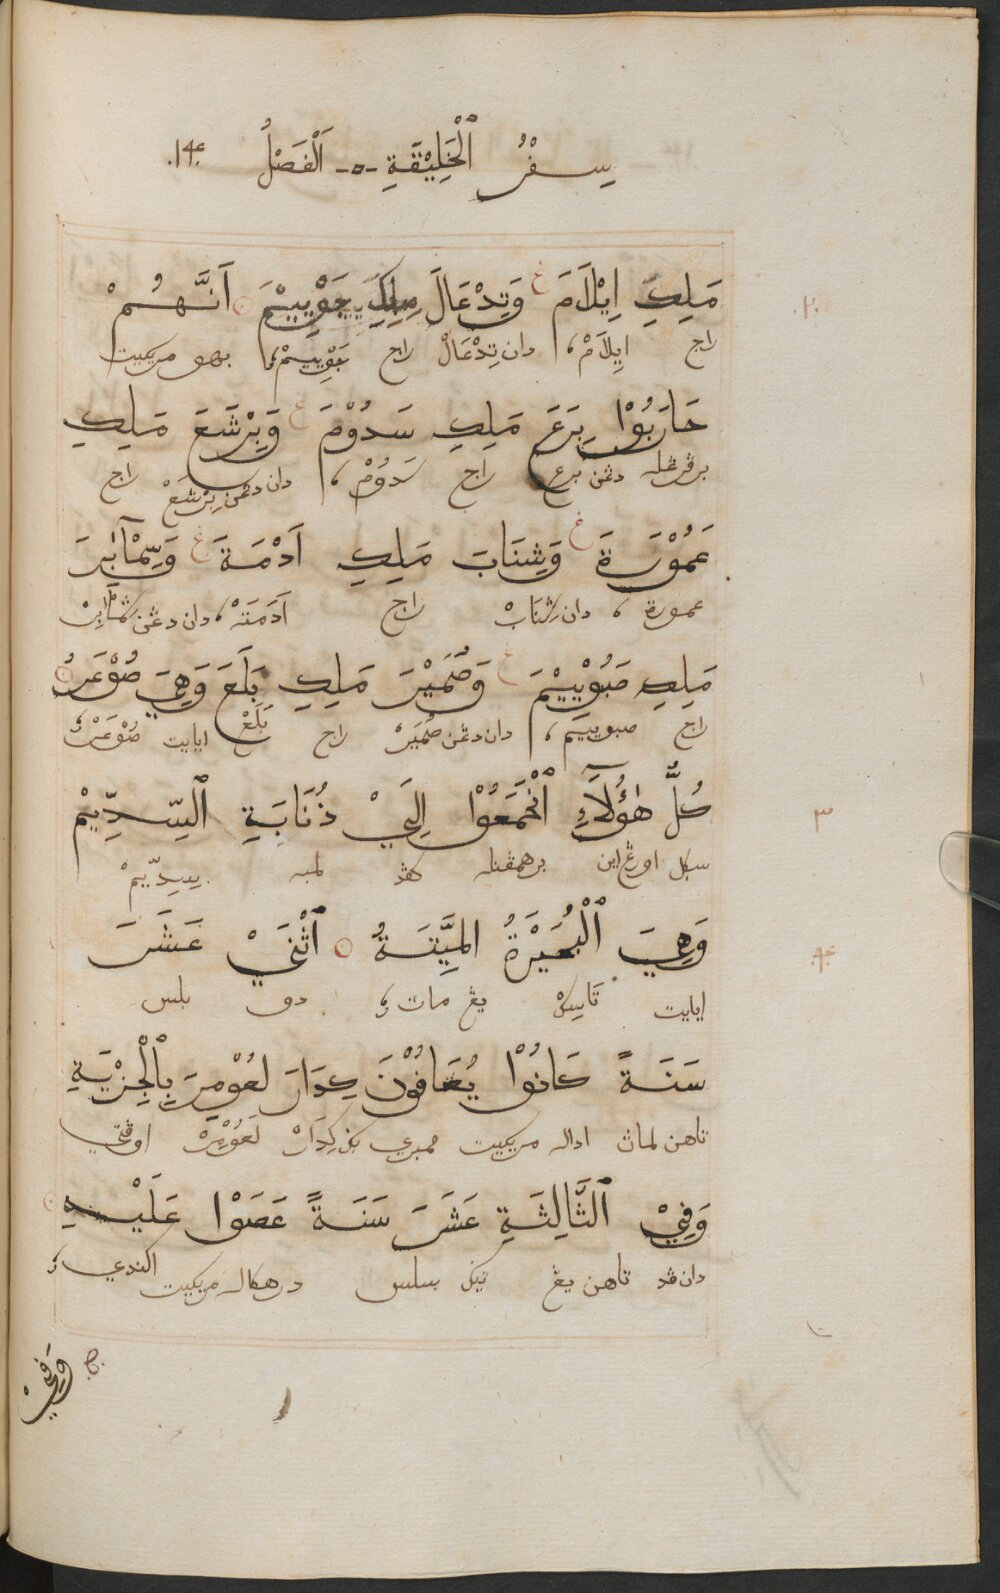 سِفْرُ ٱلْخَلِيْقَةِ -٥- اَلْفَصْلُ .١٤.
مَلِكِ اِيْلَامَ غ وَتِدْعَالَ مِلِكِ جَوْيِيْمَ ○ اَنَّهُمْ .٢.
راج اِيلَامْ، دان تِدْعَالْ راج جَوْيِيمْ، بهو مريكيت
حَارَبُوْا بِرَعَ مَلِكِ سَدُوْمَ غ وَبِرْشَعَ مَلِكِ
برڤرڠله دڠن برع راج سَدُوْمْ، دان دڠن بِرْشَعْ راج
عَمُوْرَةَ غ وَشِنَابَ مَلِكِ اَدْمَةَ غ وَسِّمْآبَرَ
عمورة، دان شِنَابْ راج اَدَمَتَهْ، دان دڠن شَمْآبِرْ
مَلِكِ صَبُوْيِيْمَ غ وَضُمَيْرَ مَلِكِ بَلَعَ وَهِيَ صُوْعَرُ ○
راج صبوييم، دان دڠن ضُمَيَرْ راج بَلَعْ ايايت صُوْعَرْ،
كُلُّ هٰؤُلَآءِ ٱجْتَمَعُوْا اِلَيْ ذُنَابَةِ ٱلسِّدِّيْمْ ٣
سڬل اورڠ اين برهمڤنله كڤد لمبه سِدِّيمْ
وَهِيَ ٱلْبُحَيْرَةُ المَيِّتَةُ ○ ٱثْنَيْ عَشَرَ .٤.
ايايت تَاسِكْ يڠ مات، دو بلس
سَنَةً كَانُوْا يُعَافُوْنَ كِدَارَ لعُوْمِرَ بِٱلْجِزْيَةِ
تاهن لمات اداله مريكيت ممبري كِدَارْ لَعُوْمِرْ اوڤتي
وَفِيْ ٱلثَّالِثَةِ عَشَرَ سَنَةً عَصَوْا عَلَيْهِ ○
دان ڤد تاهن يڠ تيݢ بلس درهكاله مريكيت اكندي،
وَفِيْ